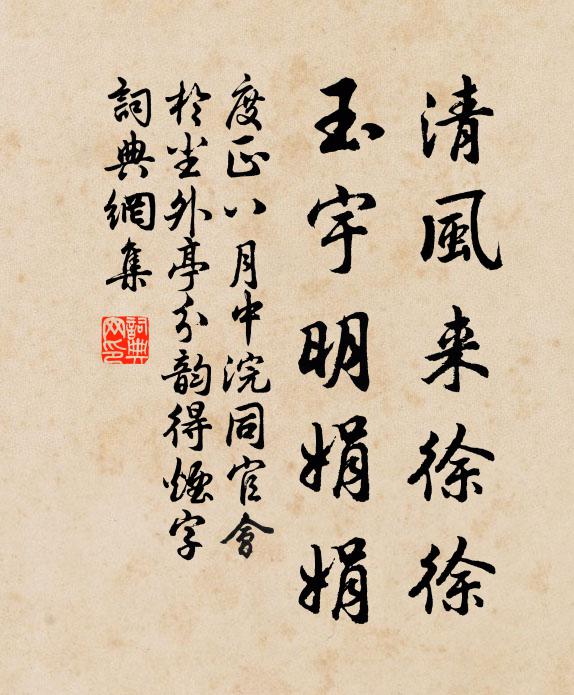 清風来徐徐
玉宇明娟娟
度正八月中浣同官會
於尘外亭分韵得煙字
詞典網集
詞典网印